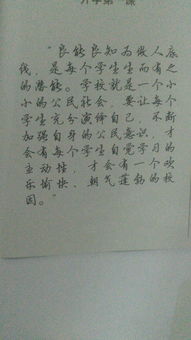 开学第一课
“良能良知为做人底
线，是每个学生生而有之
的潜能。学校就是一个小
小的公民社会，要让每个
学生充分演绎自己，不断
加强自身的公民意识，才
会有每个学生自觉学习的
主动性，才会有一个欢
乐愉快、朝气蓬勃的校
园。”